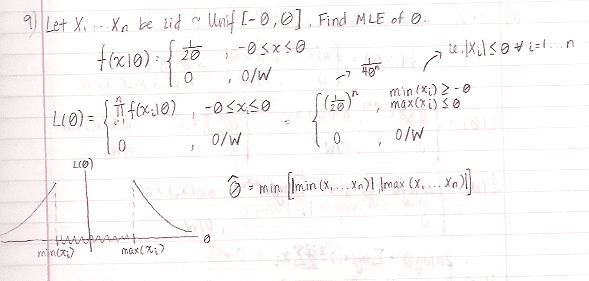 9) Let X₁ ... Xₙ be iid ~ Unif [-θ, θ]. Find MLE of θ.
f(x|θ) = { 1/2θ , -θ ≤ x ≤ θ
0 , O/W
→ 1/4θⁿ → i.e. |Xi| ≤ θ ∀ i=1...n
L(θ) = { ∏ᵢ₌₁ⁿ f(xi|θ) , -θ ≤ xi ≤ θ = { (1/2θ)ⁿ , min(xi) ≥ -θ
max(xi) ≤ θ
0 , O/W 0 , O/W
L(θ)
θ̂ = min [|min(x₁, ... xₙ)|, |max(x₁, ... xₙ)|]
θ
min(xi) max(xi)